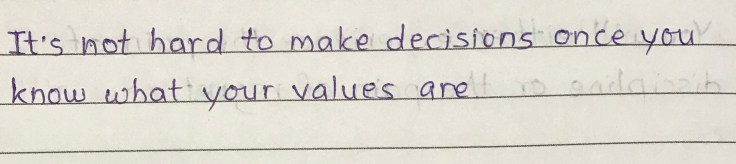 It's not hard to make decisions once you
know what your values are